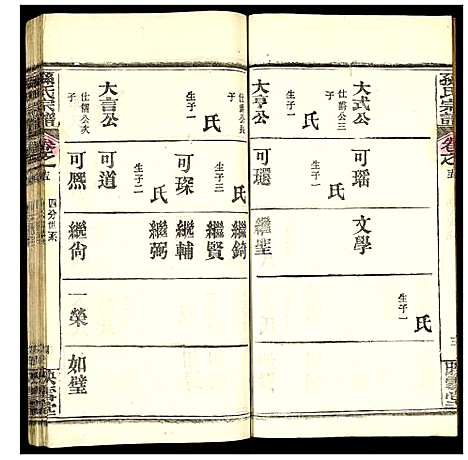 孫氏宗譜
卷之
五
大式公
仕爵公三
子
可璠
文學
氏
生子一
大亨公
可瓛
生子一
氏
生子一
氏
繼錡
生子三
氏
繼賢
可琛
繼輔
大言公
仕儒公次
子
可道
生子一
氏
繼弼
可熈
繼尙
一榮
如璧
孫氏宗譜
卷之
五
四分世系
映雪堂